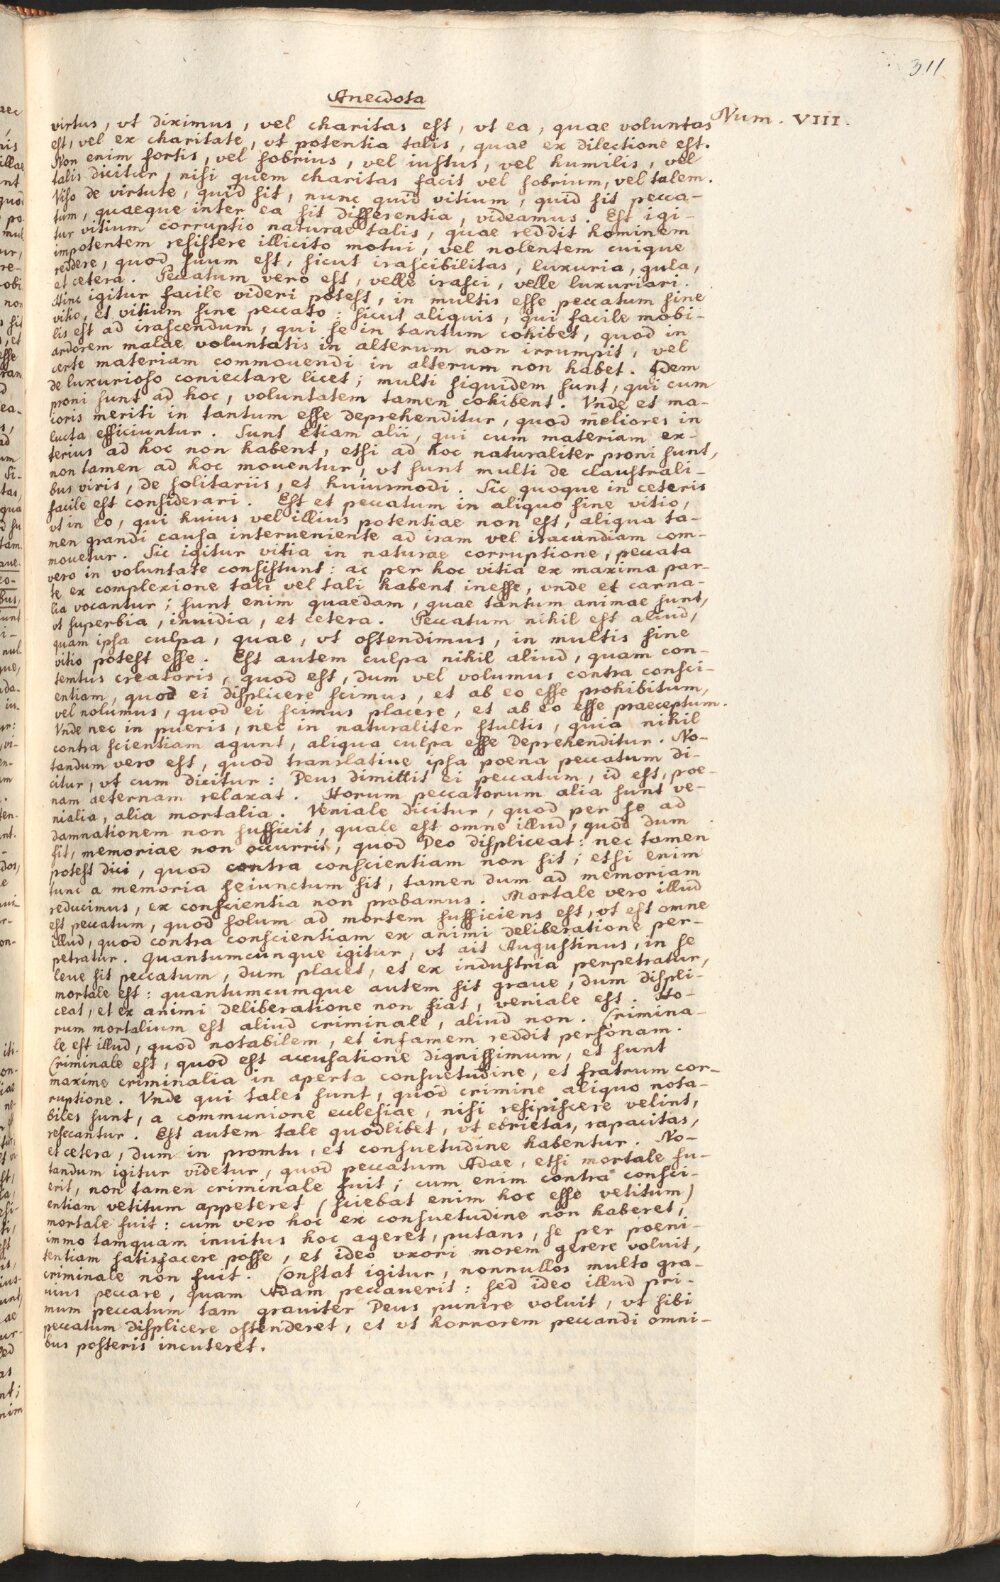 311
Anecdota
Num. VIII.
virtus, vt diximus, vel charitas est, vt ea, quae voluntas
est, vel ex charitate, vt potentia talis, quae ex dilectione est.
Non enim fortis, vel sobrius, vel iustus, vel humilis, vel
talis dicitur, nisi quem charitas facit vel sobrium, vel talem.
Viso de virtute, quid sit, nunc quid vitium, quid sit pecca-
tum, quaeque inter ea sit differentia, videamus. Est igi-
tur vitium corruptio naturae talis, quae reddit hominem
impotentem resistere illicito motui, vel nolentem cuique
reddere, quod suum est, sicut irascibilitas, luxuria, gula,
et cetera. Peccatum vero est, velle irasci, velle luxuriari.
Hinc igitur facile videri potest, in multis esse peccatum sine
vitio, et vitium sine peccato: sicut aliquis, qui facile mobi-
lis est ad irascendum, qui se in tantum cohibet, quod in
ardorem malae voluntatis in alterum non irrumpit, vel
certe materiam commouendi in alterum non habet. Idem
de luxurioso coniectare licet; multi siquidem sunt, qui cum
proni sunt ad hoc, voluntatem tamen cohibent. Vnde et ma-
ioris meriti in tantum esse deprehenditur, quod meliores in
lucta efficiuntur. Sunt etiam alii, qui cum materiam ex-
terius ad hoc non habent, etsi ad hoc naturaliter proni sunt,
non tamen ad hoc mouentur, vt sunt multi de claustrali-
bus viris, de solitariis, et huiusmodi. Sic quoque in ceteris
facile est considerari. Est et peccatum in aliquo sine vitio,
vt in eo, qui huius vel illius potentiae non est, aliqua ta-
men grandi causa interueniente ad iram vel iracundiam com-
mouetur. Sic igitur vitia in naturae corruptione, peccata
vero in voluntate consistunt: ac per hoc vitia ex maxima par-
te ex complexione tali vel tali habent inesse, vnde et carna-
lia vocantur; sunt enim quaedam, quae tantum animae sunt,
vt superbia, inuidia, et cetera. Peccatum nihil est aliud,
quam ipsa culpa, quae, vt ostendimus, in multis sine
vitio potest esse. Est autem culpa nihil aliud, quam con-
temtus creatoris, quod est, dum vel volumus contra consci-
entiam, quod ei displicere scimus, et ab eo esse prohibitum,
vel nolumus, quod ei scimus placere, et ab eo esse praeceptum.
Vnde nec in pueris, nec in naturaliter stultis, quia nihil
contra scientiam agunt, aliqua culpa esse deprehenditur. No-
tandum vero est, quod translatiue ipsa poena peccatum di-
citur, vt cum dicitur: Deus dimittit ei peccatum, id est, poe-
nam aeternam relaxat. Horum peccatorum alia sunt ve-
nialia, alia mortalia. Veniale dicitur, quod per se ad
damnationem non sufficit, quale est omne illud, quod dum
fit, memoriae non occurrit, quod Deo displiceat: nec tamen
potest dici, quod contra conscientiam non sit; etsi enim
tunc a memoria seiunctum sit, tamen dum ad memoriam
reducimus, ex conscientia non probamus. Mortale vero illud
est peccatum, quod solum ad mortem sufficiens est, vt est omne
illud, quod contra conscientiam ex animi deliberatione per-
petratur. Quantumcunque igitur, vt ait Augustinus, in se
leue sit peccatum, dum placet, et ex industria perpetratur,
mortale est: quantumcumque autem sit graue, dum displi-
ceat, et ex animi deliberatione non fiat, veniale est. Ho-
rum mortalium est aliud criminale, aliud non. Crimina-
le est illud, quod notabilem, et infamem reddit personam.
Criminale est, quod est accusatione dignissimum, et sunt
maxime criminalia in aperta consuetudine, et fratrum cor-
ruptione. Vnde qui tales sunt, quod crimine aliquo nota-
biles sunt, a communione ecclesiae, nisi resipiscere velint,
resecantur. Est autem tale quodlibet, vt ebrietas, rapacitas,
et cetera, dum in promtu, et consuetudine habentur. No-
tandum igitur videtur, quod peccatum Adae, etsi mortale fu-
erit, non tamen criminale fuit; cum enim contra consci-
entiam vetitum appeteret (sciebat enim hoc esse vetitum)
mortale fuit: cum vero hoc ex consuetudine non haberet,
immo tamquam inuitus hoc ageret, putans, se per poeni-
tentiam satisfacere posse, et ideo vxori morem gerere voluit,
criminale non fuit. Constat igitur, nonnullos multo gra-
uius peccare, quam Adam peccauerit: sed ideo illud pri-
mum peccatum tam grauiter Deus punire voluit, vt sibi
peccatum displicere ostenderet, et vt horrorem peccandi omni-
bus posteris incuteret.